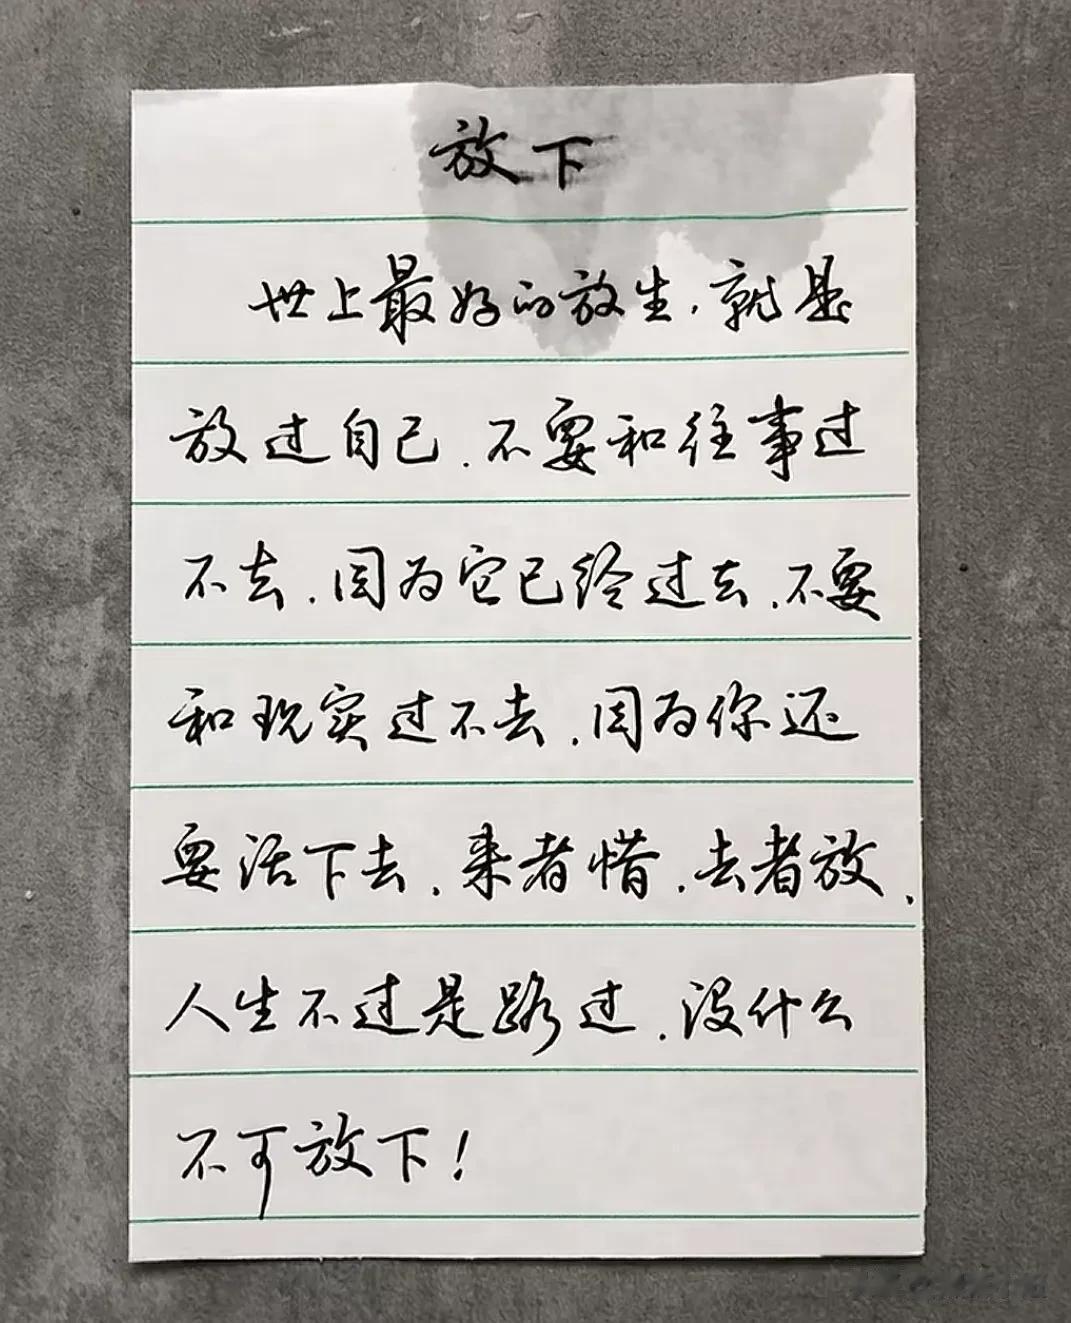 放下
世上最好的放生,就是
放过自己.不要和往事过
不去.因为它已经过去.不要
和现实过不去.因为你还
要活下去.来者惜.去者放.
人生不过是路过.没什么
不可放下!